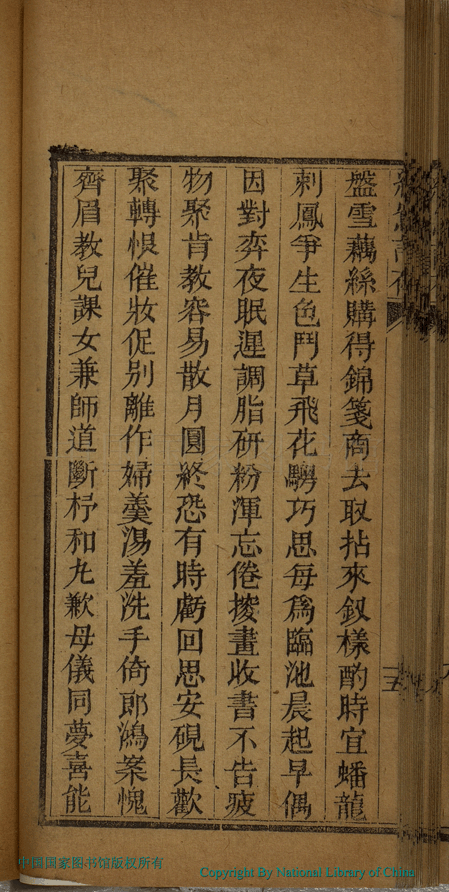 盤雪藕絲購得錦箋商去取拈來釵樣酌時宜蟠龍
刺鳳爭生色鬥草飛花騁巧思每為臨池晨起早偶
因對弈夜眠遲調脂研粉渾忘倦挍畫收書不告疲
物聚肯教容易散月圓終恐有時虧回思安硯長歡
聚轉悞催妝促別離作婦羹湯羞洗手倚郎鴻案愧
齊眉教兒課女兼師道斷杼和丸歉母儀同夢喜能
五
中国国家图书馆版权所有
Copyright By National Library of China